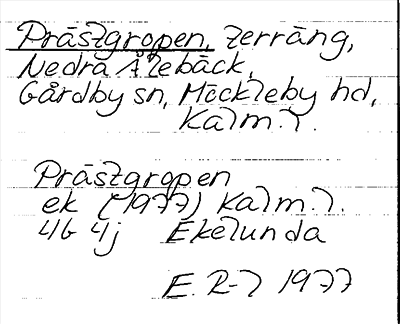 Prästgropen, terräng,
Nedra Ålebäck,
Gårdby sn, Möckleby hd,
Kalm.l.
Prästgropen
ek (1977) Kalm.l.
4G 4j Ekelunda
E. R-l 1977